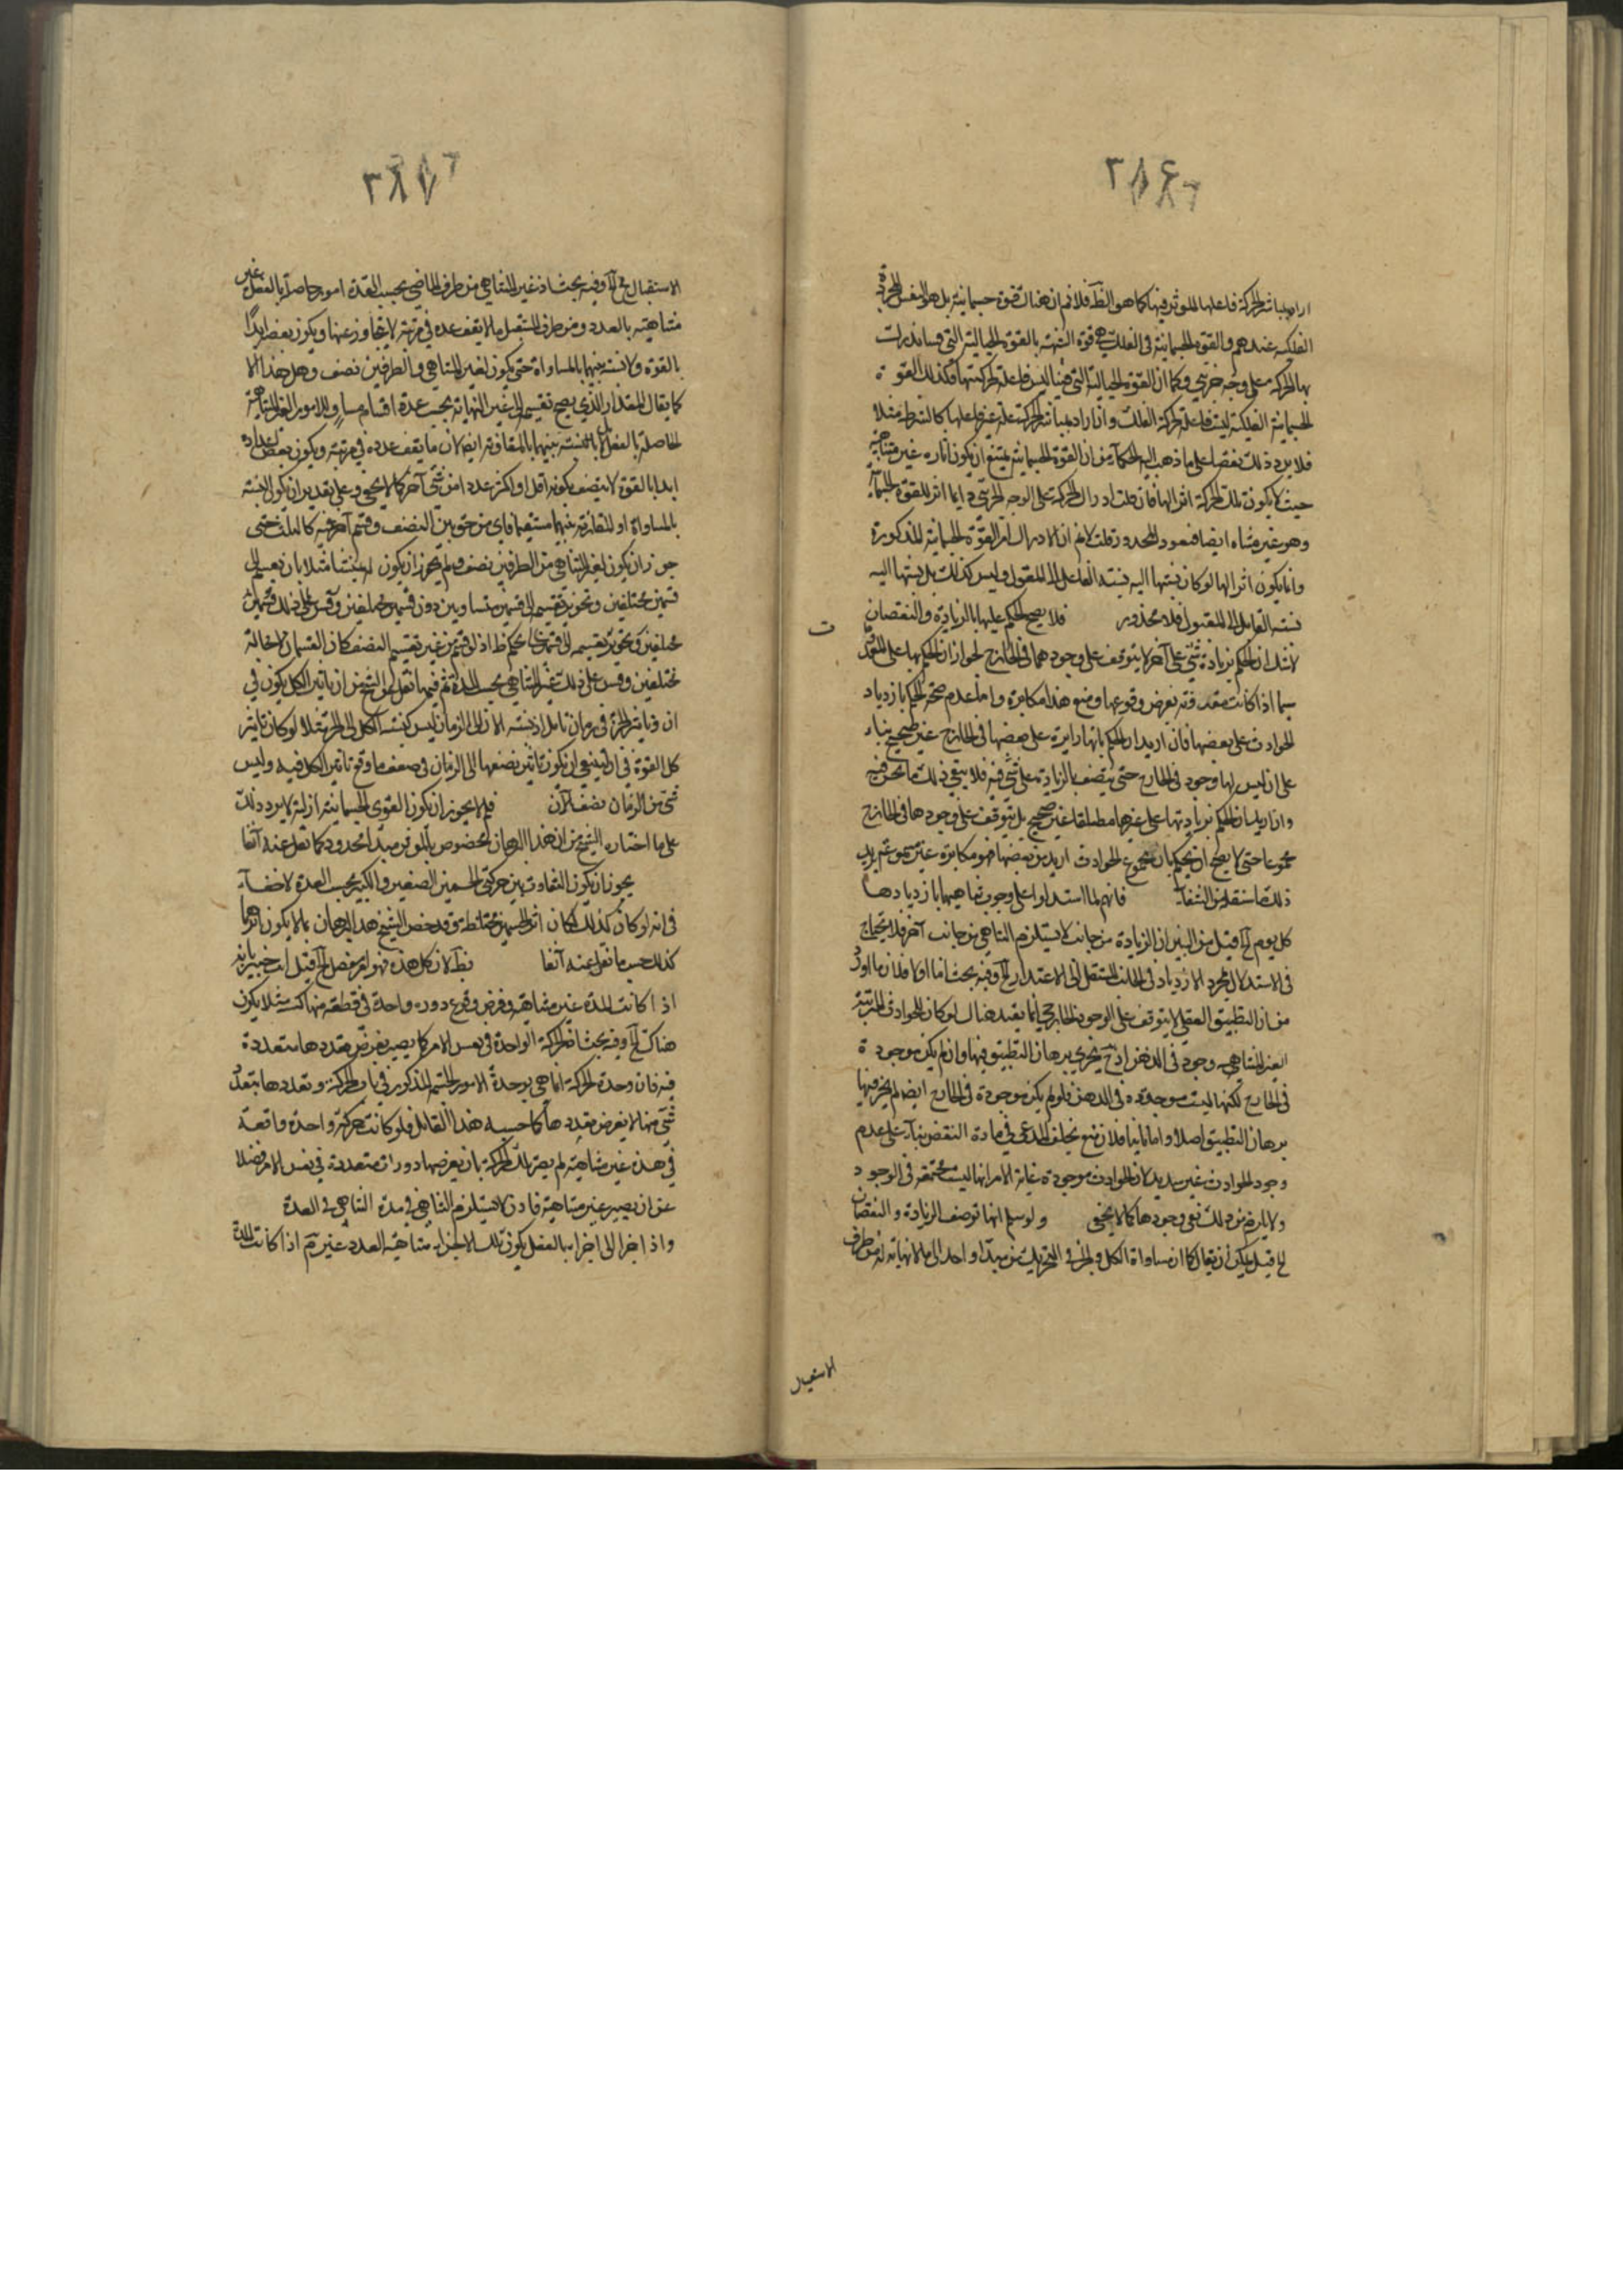 ٢٨٤
اراد بمباشر الحركة فاعلها المؤثر فيها كما هو الظ فلا نم ان هناك قوة جسمانية بل هو النفس المجردة
الفلكية عندهم والقوة الجسمانية في الفلك هي قوة شبيهة بالقوة الخيالية التي فينا ندرك
بها الحركة على وجه جزئي وكما ان القوة الخيالية التي فينا ليس فاعلة لحركتنا فكذلك القوة
الجسمانية الفلكية ليست فاعلة لحركة الفلك وان اراد بمباشر الحركة علة غير فاعلها كالشرط مثلا
فلا يرد ذلك نقضا على ما ذهب اليه الحكماء من ان القوة الجسمانية يمتنع ان يكون اثاره غير متناهية
حيث لا يكون تلك الحركة اثر الها فان قلت ادراك الحركة على الوجه الجزئي دايما اثر للقوة الجسمانية
وهو غير متناه ايضا فيعود المحذور قلت لا نم ان الادراك اثر القوة الجسمانية المذكورة
وانما يكون اثر الها لو كان نسبتها اليه نسبة الفاعل الى المفعول وليس كذلك بل نسبتها اليه
نسبة القابل الى المقبول فلا محذور فلا يصح الحكم عليها بالزيادة والنقصان
لا شك ان الحكم بزيادة شيء على آخر لا يتوقف على وجودهما في الخارج لجواز ان الحكم بها على المعدوم
سيما اذا كانت معدوته بفرض وقوعها ومنع هذا مكابرة واما عدم صحة الحكم بازدياد
الحوادث على بعضها فان اريد ان الحكم بانها زايدة على بعضها في الخارج غير صحيح بناء
على ان ليس لها وجود في الخارج حتى يتصف بالزيادة على شيء فيه فلا ينفي ذلك ما نحن فيه
وان اريد ان الحكم بزيادتها على غيرها مطلقا غير صحيح بل يتوقف على وجودها في الخارج
مجموعا حتى لا يصح ان يحكم بان مجموع الحوادث ازيد من بعضها فهو مكابرة غير مسموعة يؤيد
ذلك ما سننقله من الشفاء فانهم لما استدلوا على وجوب تناهيها بازديادها
كل يوم الخ قيل من البين ان الزيادة من جانب لا يستلزم التناهي من جانب آخر فلا يحتاج
في الاستدلال بمجرد الازدياد في الجانب المتنقل الى الاعتذار الخ وفيه بحث اما اولا فلان ما اورد
من ان التطبيق العقلي لا يتوقف على الوجود الخارجي انما يفيد هناك لو كان للحوادث المترتبة
الغير المتناهية وجود في الذهن اذ ح يجري برهان التطبيق فيها وان لم يكن موجودة
في الخارج لكنها ليست موجودة في الذهن فلو لم يكن موجودة في الخارج ايضا لم يجر فيها
برهان التطبيق اصلا واما ثانيا فلان منع تخلف المدعى في مادة النقض بناء على عدم
وجود الحوادث غير سديد لان الحوادث موجودة غاية الامر انها ليست مجتمعة في الوجود
ولا يلزم من ذلك نفي وجودها كما لا يخفى ولو سلم انها توصف الزيادة والنقصان
الخ قيل يمكن ان يقال كما ان مساواة الكل والجزء في التحريك من مبدأ واحد الى ما لا نهاية له من طرف
الاستقبال
٢٨٧
الاستقبال مح الخ وفيه بحث اذ غير المتناهي من طرف الماضي بحسب العدة امور حاصلة بالفعل غير
متناهية بالعدد ومن طرف المستقبل ما لا يقف عده في مرتبة لا يتجاوز عنها ويكون بعضه ابدا
بالقوة ولا نسبة بينهما بالمساواة حتى يكون لغير المتناهي في الطرفين نصف وهل هذا الا
كما يقال المقدار الذي يصح تقسيمه الى غير النهاية بحسب عدة اقسام مساو للامور الغير المتناهية
الحاصلة بالفعل بل لا نسبة بينهما بالمفاوتة ايضا لان ما يقف عدده في مرتبة ويكون بعض اعداده
ابدا بالقوة لا يتصف بكونه اقل او اكثر عددا من شيء آخر كما لا يخفى وعلى تقدير ان يكون النسبة
بالمساواة او المفاوتة بينهما مستقيما فاي من حقوق بين النصف وقسم آخر غيره كالثلث حتى
جوز ان يكون لغير المتناهي من الطرفين نصف ولم يجوز ان يكون له ثلث مثلا بان يقسم الى
قسمين مختلفين وتجويز تقسيمه الى قسمين متساويين دون قسمين مختلفين وقس على ذلك قسمين
مختلفين وتجويز تقسيمه الى قسمين تحكم ظ اذ لو قسم من غير تقسيم النصف كان القسمان لا محالة
مختلفين وقس على ذلك غير المتناهي بحسب المدة ثم فيما نقل عن الشيخ من ان تاثير الكل يكون في
ان وتاثير الجزء في زمان تامل اذ نسبة الان الى الزمان ليس كنسبة الكل الى الجزء فلا لو كان تاثير
كل القوة في ان لينبغي ان يكون تاثير نصفها الى الزمان في ضعف ما وقع تاثير الكل فيه وليس
شيء من الزمان ضعف الآن فلم لا يجوز ان يكون القوى الجسمانية ازلية لا يرد ذلك
على ما اختاره الشيخ من ان هذا البرهان مخصوص بالمؤثر من مبدأ محدود كما نقل عنه آنفا
يجوز ان يكون التفاوت بين حركتي الجسمين الصغير والكبير بحسب العدة لا خفاء
في انه لو كان كذلك لكان اثر الجسمين مختلطة وقد خص الشيخ هذا البرهان بما لا يكون اثرهما
كذلك حسب ما نقل عنه آنفا فظ لان كل هذه فهو امر مفصل الخ قيل انت خبير بانه
اذا كانت المدة غير متناهية وفرض وقوع دورة واحدة في قطعة منها كسنة مثلا يكون
هناك الخ وفيه بحث اذ الحركة الواحدة في نفس الامر كما يصير بفرض تعددها متعددة
فيه فان وحدة الحركة انما هي بوحدة الامور الستة المذكورة في باب الحركة وتعددها بتعدد
شيء منها لا بفرض تعددها كما حسبه هذا القائل فلو كانت حركة واحدة واقعة
في مدة غير متناهية لم يصر تلك الحركة بان يفرضها دورات متعددة في نفس الامر فضلا
عن ان يصير غير متناهية فاذن لا يستلزم التناهي في مدة التناهي في العدة
واذا جزا الى اجزاء بالفعل يكون تلك الاجزاء متناهية العدد غير تم اذا كانت المدة